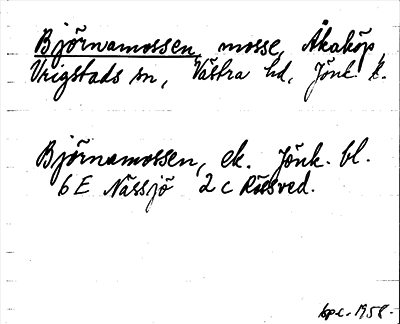 Björnamossen, mosse, Åkaköp,
Vrigstads sn, Västra hd, Jönk l.
Björnamossen, ek. Jönk. bl.
6 E Nässjö 2 c Rösved.
1958.